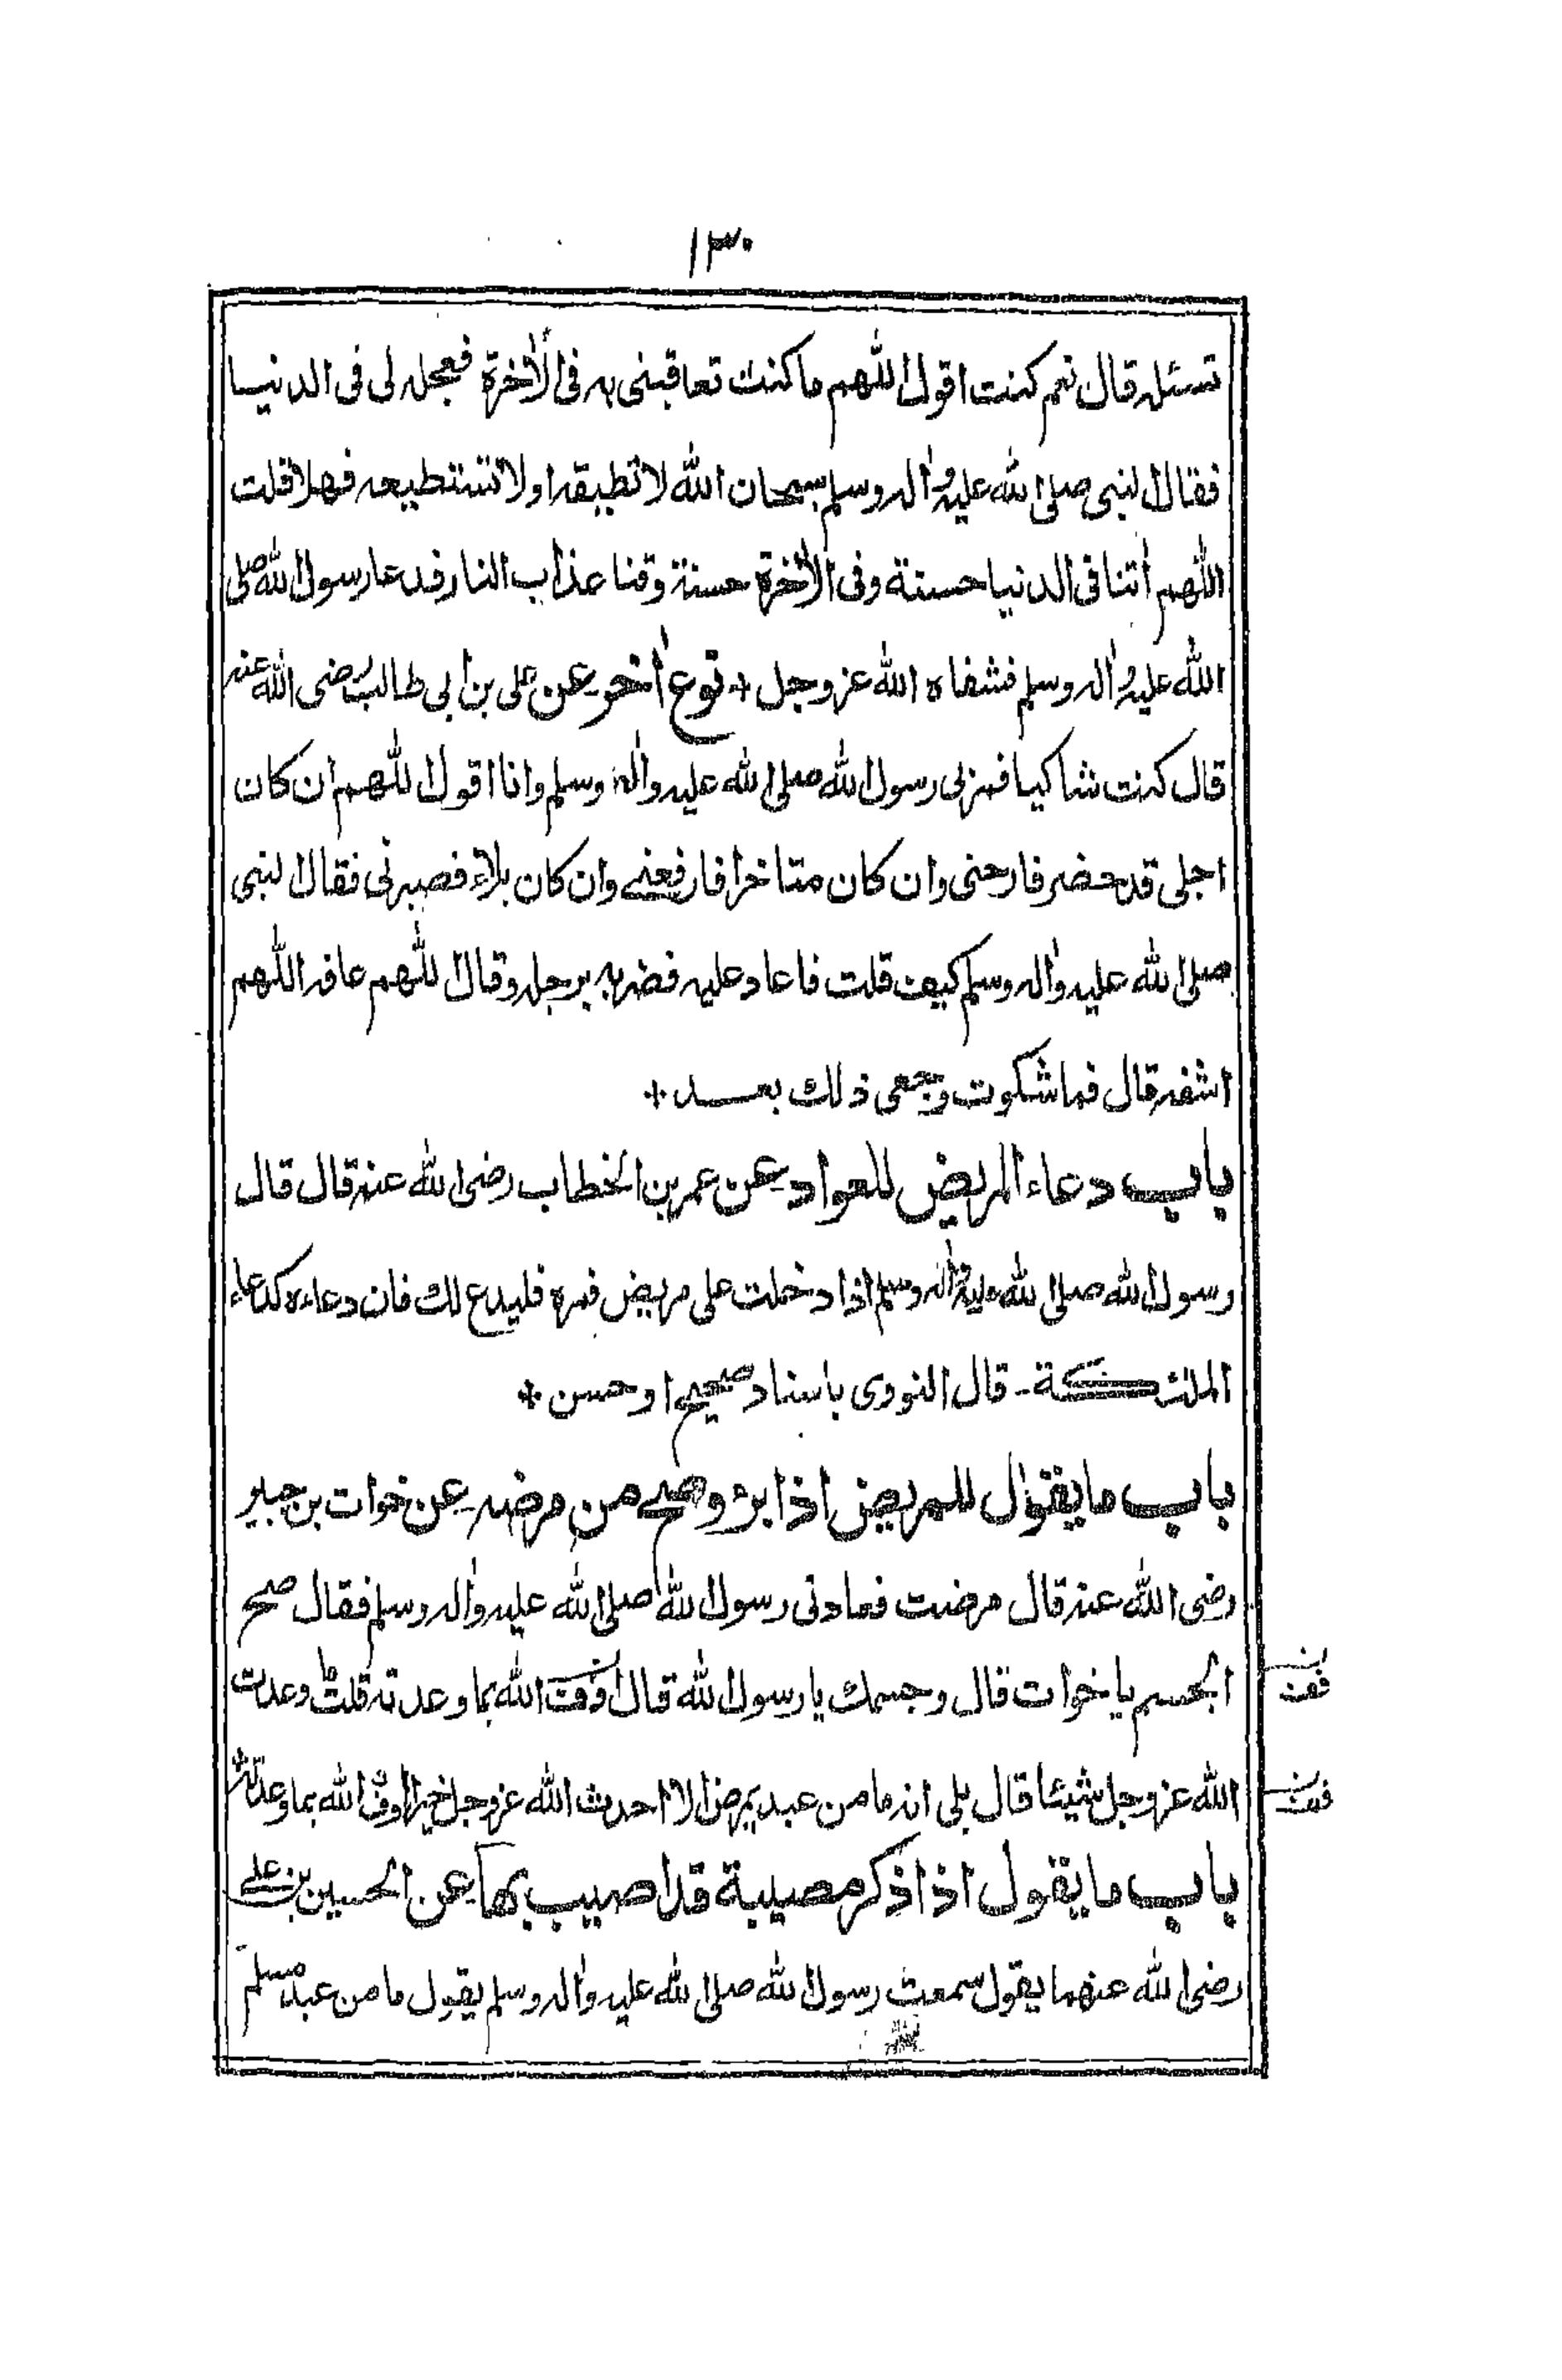 ١٣٠
تسئله قال نعم كنت اقول اللهم ما كنت تعاقبنى به فى الاٰخرة فعجله لى فى الدنيا
فقال النبى صلى الله عليه واٰله وسلم سبحان الله لا تطيقه او لا تستطيعه فهلا قلت
اللهم اٰتنا فى الدنيا حسنة وفى الاٰخرة حسنة وقنا عذاب النار فدعا رسول الله صلى
الله عليه واٰله وسلم فشفاه الله عز وجل * نوع اٰخر عن على بن ابى طالب رضى الله عنه
قال كنت شاكيا فمر بى رسول الله صلى الله عليه واٰله وسلم وانا اقول اللهم ان كان
اجلى قد حضر فارحنى وان كان متاخرا فارفعنے وان كان بلاء فصبرنى فقال النبى
صلى الله عليه واٰله وسلم كيف قلت فاعاد عليه فضربه برجله وقال اللهم عافه اللهم
اشفه قال فما شكوت وجعى ذلك بعد *
باب دعاء المريض للعواد عن عمر بن الخطاب رضى الله عنه قال قال
رسول الله صلى الله عليه واٰله وسلم اذا دخلت على مريض فمره فليدع لك فان دعاءه كدعاء
الملئكة ـ قال النووى باسناد صحيح او حسن *
باب ما يقول للمريض اذا برء وصح من مرضه عن خوات بن جبير
رضى الله عنه قال مرضت فعادنى رسول الله صلى الله عليه واٰله وسلم فقال صح
الجسم يا خوات قال وجسمك يا رسول الله قال اوف الله بما وعدته قلت ما وعدت
الله عز وجل شيئا قال بلى انه ما من عبد يمرض الا احدث الله عز وجل خيرا اوف الله بما وعدته
باب ما يقول اذا ذكر مصيبة قد اصيب بها عن الحسين بن على
رضى الله عنهما يقول سمعت رسول الله صلى الله عليه واٰله وسلم يقول ما من عبد مسلم